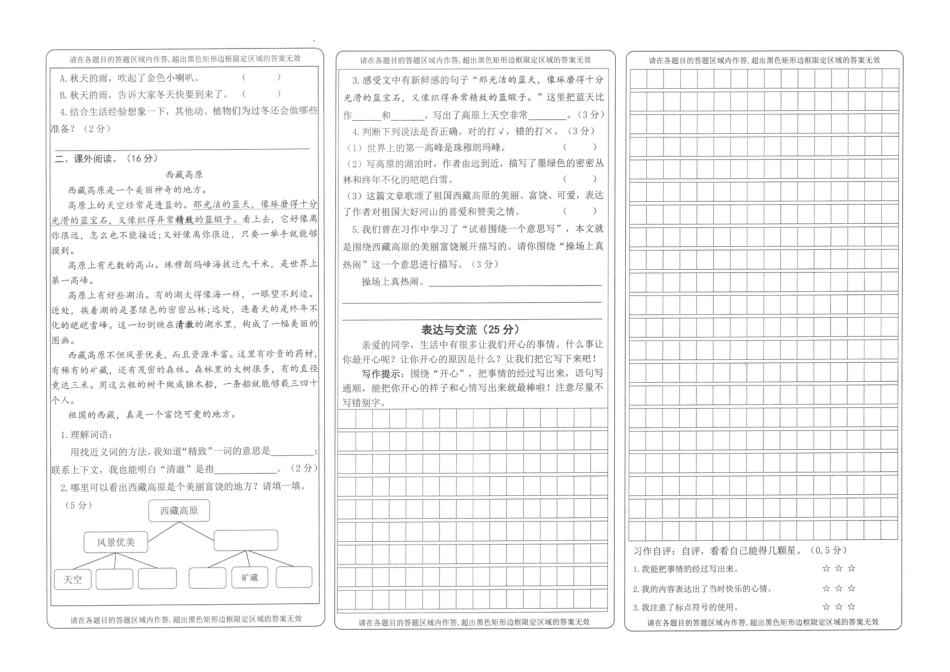 请在各题目的答题区域内作答,超出黑色矩形边框限定区域的答案无效
A.秋天的雨，吹起了金色小喇叭。 （ ）
B.秋天的雨，告诉大家冬天快要到来了。（ ）
4.结合生活经验想象一下，其他动、植物们为过冬还会做哪些
准备？（2 分）
二、课外阅读。（16 分）
西藏高原
西藏高原是一个美丽神奇的地方。
高原上的天空经常是湛蓝的。那光洁的蓝天，像琢磨得十分
光滑的蓝宝石，又像织得异常精致的蓝缎子。看上去，它好像离
你很远，怎么也不能接近；又好像离你很近，只要一举手就能够
摸到。
高原上有无数的高山。珠穆朗玛峰海拔近九千米，是世界上
第一高峰。
高原上有好些湖泊。有的湖大得像海一样，一眼望不到边。
近处，挨着湖的是墨绿色的密密丛林；远处，连着天的是终年不
化的皑皑雪峰。这一切倒映在清澈的湖水里，构成了一幅美丽的
图画。
西藏高原不但风景优美，而且资源丰富。这里有珍贵的药材，
有稀有的矿藏，还有茂密的森林。森林里的大树很多，有的直径
竟达三米。用这么粗的树干做成独木船，一条船就能够载三四十
个人。
祖国的西藏，真是一个富饶可爱的地方。
1.理解词语：
用找近义词的方法，我知道“精致”一词的意思是________；
联系上下文，我也能明白“清澈”是指____________。（2 分）
2.哪里可以看出西藏高原是个美丽富饶的地方？请填一填。
（5 分）
西藏高原
风景优美
天空
矿藏
请在各题目的答题区域内作答,超出黑色矩形边框限定区域的答案无效
请在各题目的答题区域内作答,超出黑色矩形边框限定区域的答案无效
3.感受文中有新鲜感的句子“那光洁的蓝天，像琢磨得十分
光滑的蓝宝石，又像织得异常精致的蓝缎子。”这里把蓝天比
作______和_______，写出了高原上天空非常________。（3 分）
4.判断下列说法是否正确。对的打√，错的打×。（3 分）
（1）世界上的第一高峰是珠穆朗玛峰。 （ ）
（2）写高原的湖泊时，作者由远到近，描写了墨绿色的密密丛
林和终年不化的皑皑白雪。 （ ）
（3）这篇文章歌颂了祖国西藏高原的美丽、富饶、可爱，表达
了作者对祖国大好河山的喜爱和赞美之情。 （ ）
5.我们曾在习作中学习了“试着围绕一个意思写”，本文就
是围绕西藏高原的美丽富饶展开描写的。请你围绕“操场上真
热闹”这一个意思进行描写。（3 分）
操场上真热闹。______________________________
表达与交流（25 分）
亲爱的同学，生活中有很多让我们开心的事情。什么事让
你最开心呢？让你开心的原因是什么？让我们把它写下来吧！
写作提示：围绕“开心”，把事情的经过写出来，语句写
通顺，能把你开心的样子和心情写出来就最棒啦！注意尽量不
写错别字。
请在各题目的答题区域内作答,超出黑色矩形边框限定区域的答案无效
请在各题目的答题区域内作答,超出黑色矩形边框限定区域的答案无效
习作自评：自评，看看自己能得几颗星。（0.5 分）
1.我能把事情的经过写出来。 ☆ ☆ ☆
2.我的内容表达出了当时快乐的心情。 ☆ ☆ ☆
3.我注意了标点符号的使用。 ☆ ☆ ☆
请在各题目的答题区域内作答,超出黑色矩形边框限定区域的答案无效